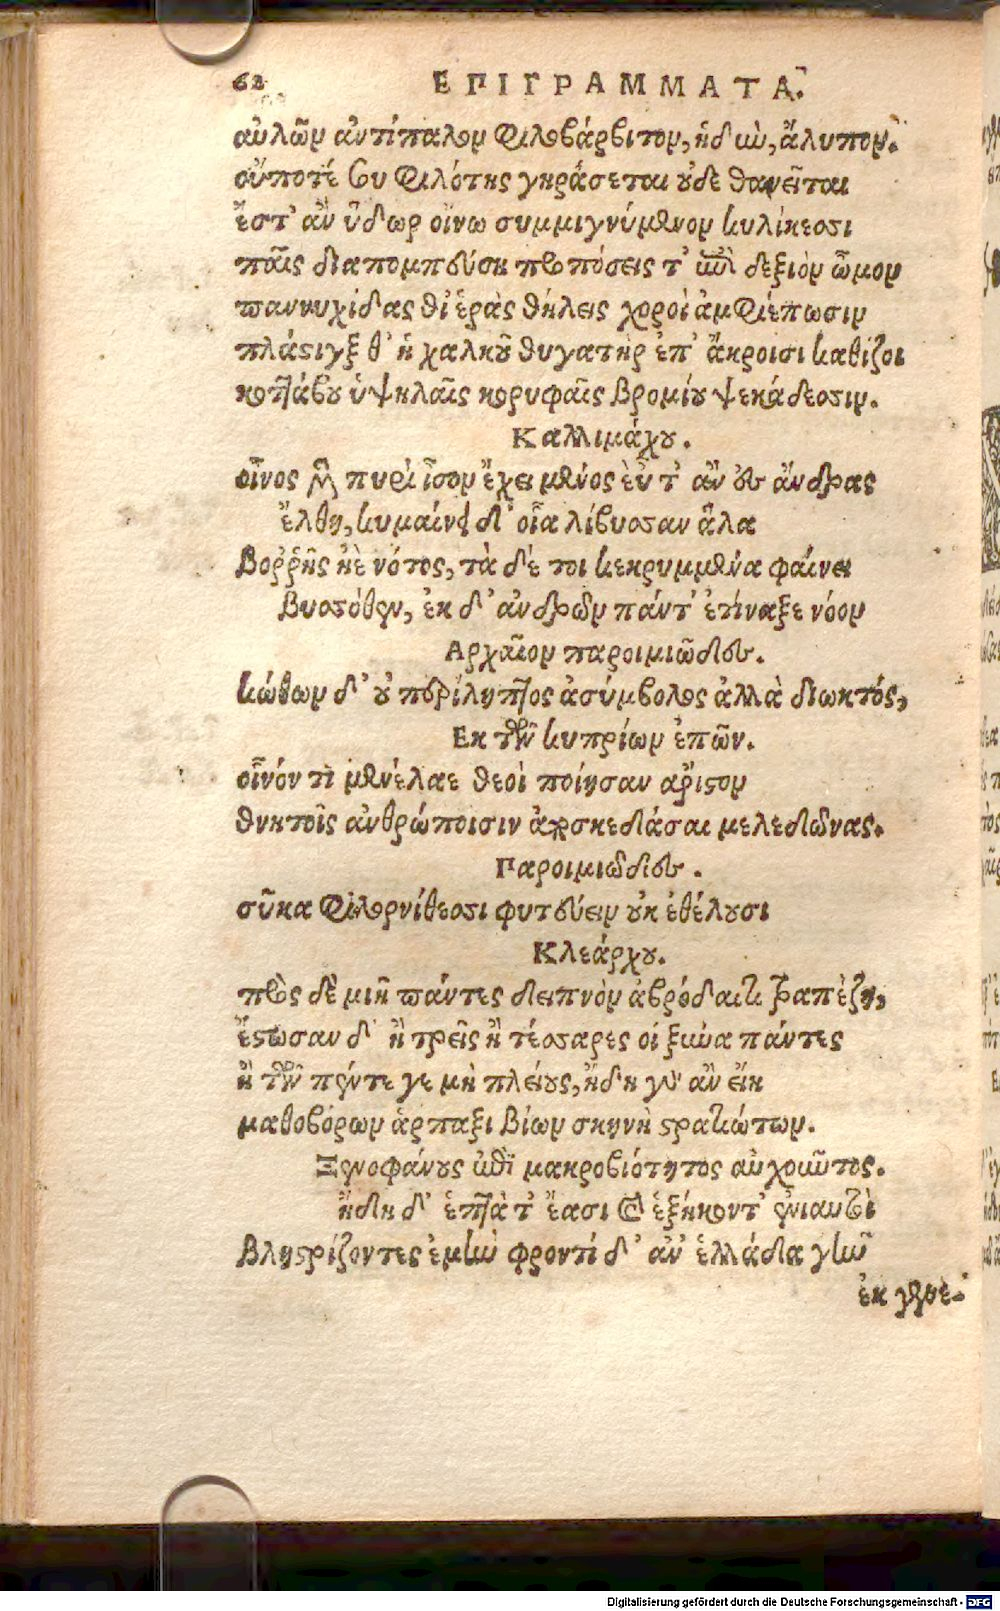 62 ΕΠΙΓΡΑΜΜΑΤΑ.
αὐλῶν ἀντίπαλον φιλοβάρβιτον, ἡδὺν, ἄλυπον.
οὔποτέ σου φιλότης γηράσεται οὐδὲ θανεῖται
ἔστ' ἂν ὕδωρ οἴνῳ συμμιγνύμενον κυλίκεσσι
παῖς διαπομπεύσῃ προπόσεις τ' ἐπὶ δεξιὸν ὦμον
παννυχίδας θ' ἱερὰς θήλεις χοροὶ ἀμφιέπωσιν
πλάστιγξ θ' ἡ χαλκοῦ θυγατὴρ ἐπ' ἄκροισι καθίζοι
κοττάβου ὑψηλαῖς κορυφαῖς βρομίου ψεκάδεσσιν.
Καλλιμάχου.
οἶνος πυρὶ ἶσον ἔχει μένος εὖτ' ἂν ἐς ἄνδρας
ἔλθῃ, κυμαίνει δ' οἷα λίβυσσαν ἅλα
βοῤῥῆς ἠὲ νότος, τὰ δέ τοι κεκρυμμένα φαίνει
βυσσόθεν, ἐκ δ' ἀνδρῶν πάντ' ἐτίναξε νόον
Αρχαῖον παροιμιῶδες.
κώθων δ' οὐ περίληπτος ἀσύμβολος ἀλλὰ διωκτός,
Εκ τῶν κυπρίων ἐπῶν.
οἶνόν τι μενέλαε θεοὶ ποίησαν ἄριστον
θνητοῖς ἀνθρώποισιν ἀποσκεδάσαι μελεδῶνας.
Παροιμιῶδες.
σῦκα φιλορνίθεσσι φυτεύειν οὐκ ἐθέλουσι
Κλεάρχου.
πρὸς δὲ μιῇ πάντες δειπνὸν ἁβρόδαιτι τραπέζῃ,
ἔστωσαν δ' ἢ τρεῖς ἢ τέσσαρες οἱ ξυνάπαντες
ἢ τῶν πέντε γε μὴ πλείους, ἤδη γὰρ ἂν εἴη
μαθοβόρων ἁρπαξι βίων σκηνὴ στρατιώτων.
Ξενοφάνους ἐπὶ μακροβιότητος αὐχοῦντος.
ἤδη δ' ἑπτά τ' ἔασι καὶ ἑξήκοντ' ἐνιαυτοὶ
βληστρίζοντες ἐμὴν φροντίδ' ἀν' ἑλλάδα γῆν
ἐκ γενε-
Digitalisierung gefördert durch die Deutsche Forschungsgemeinschaft - DFG